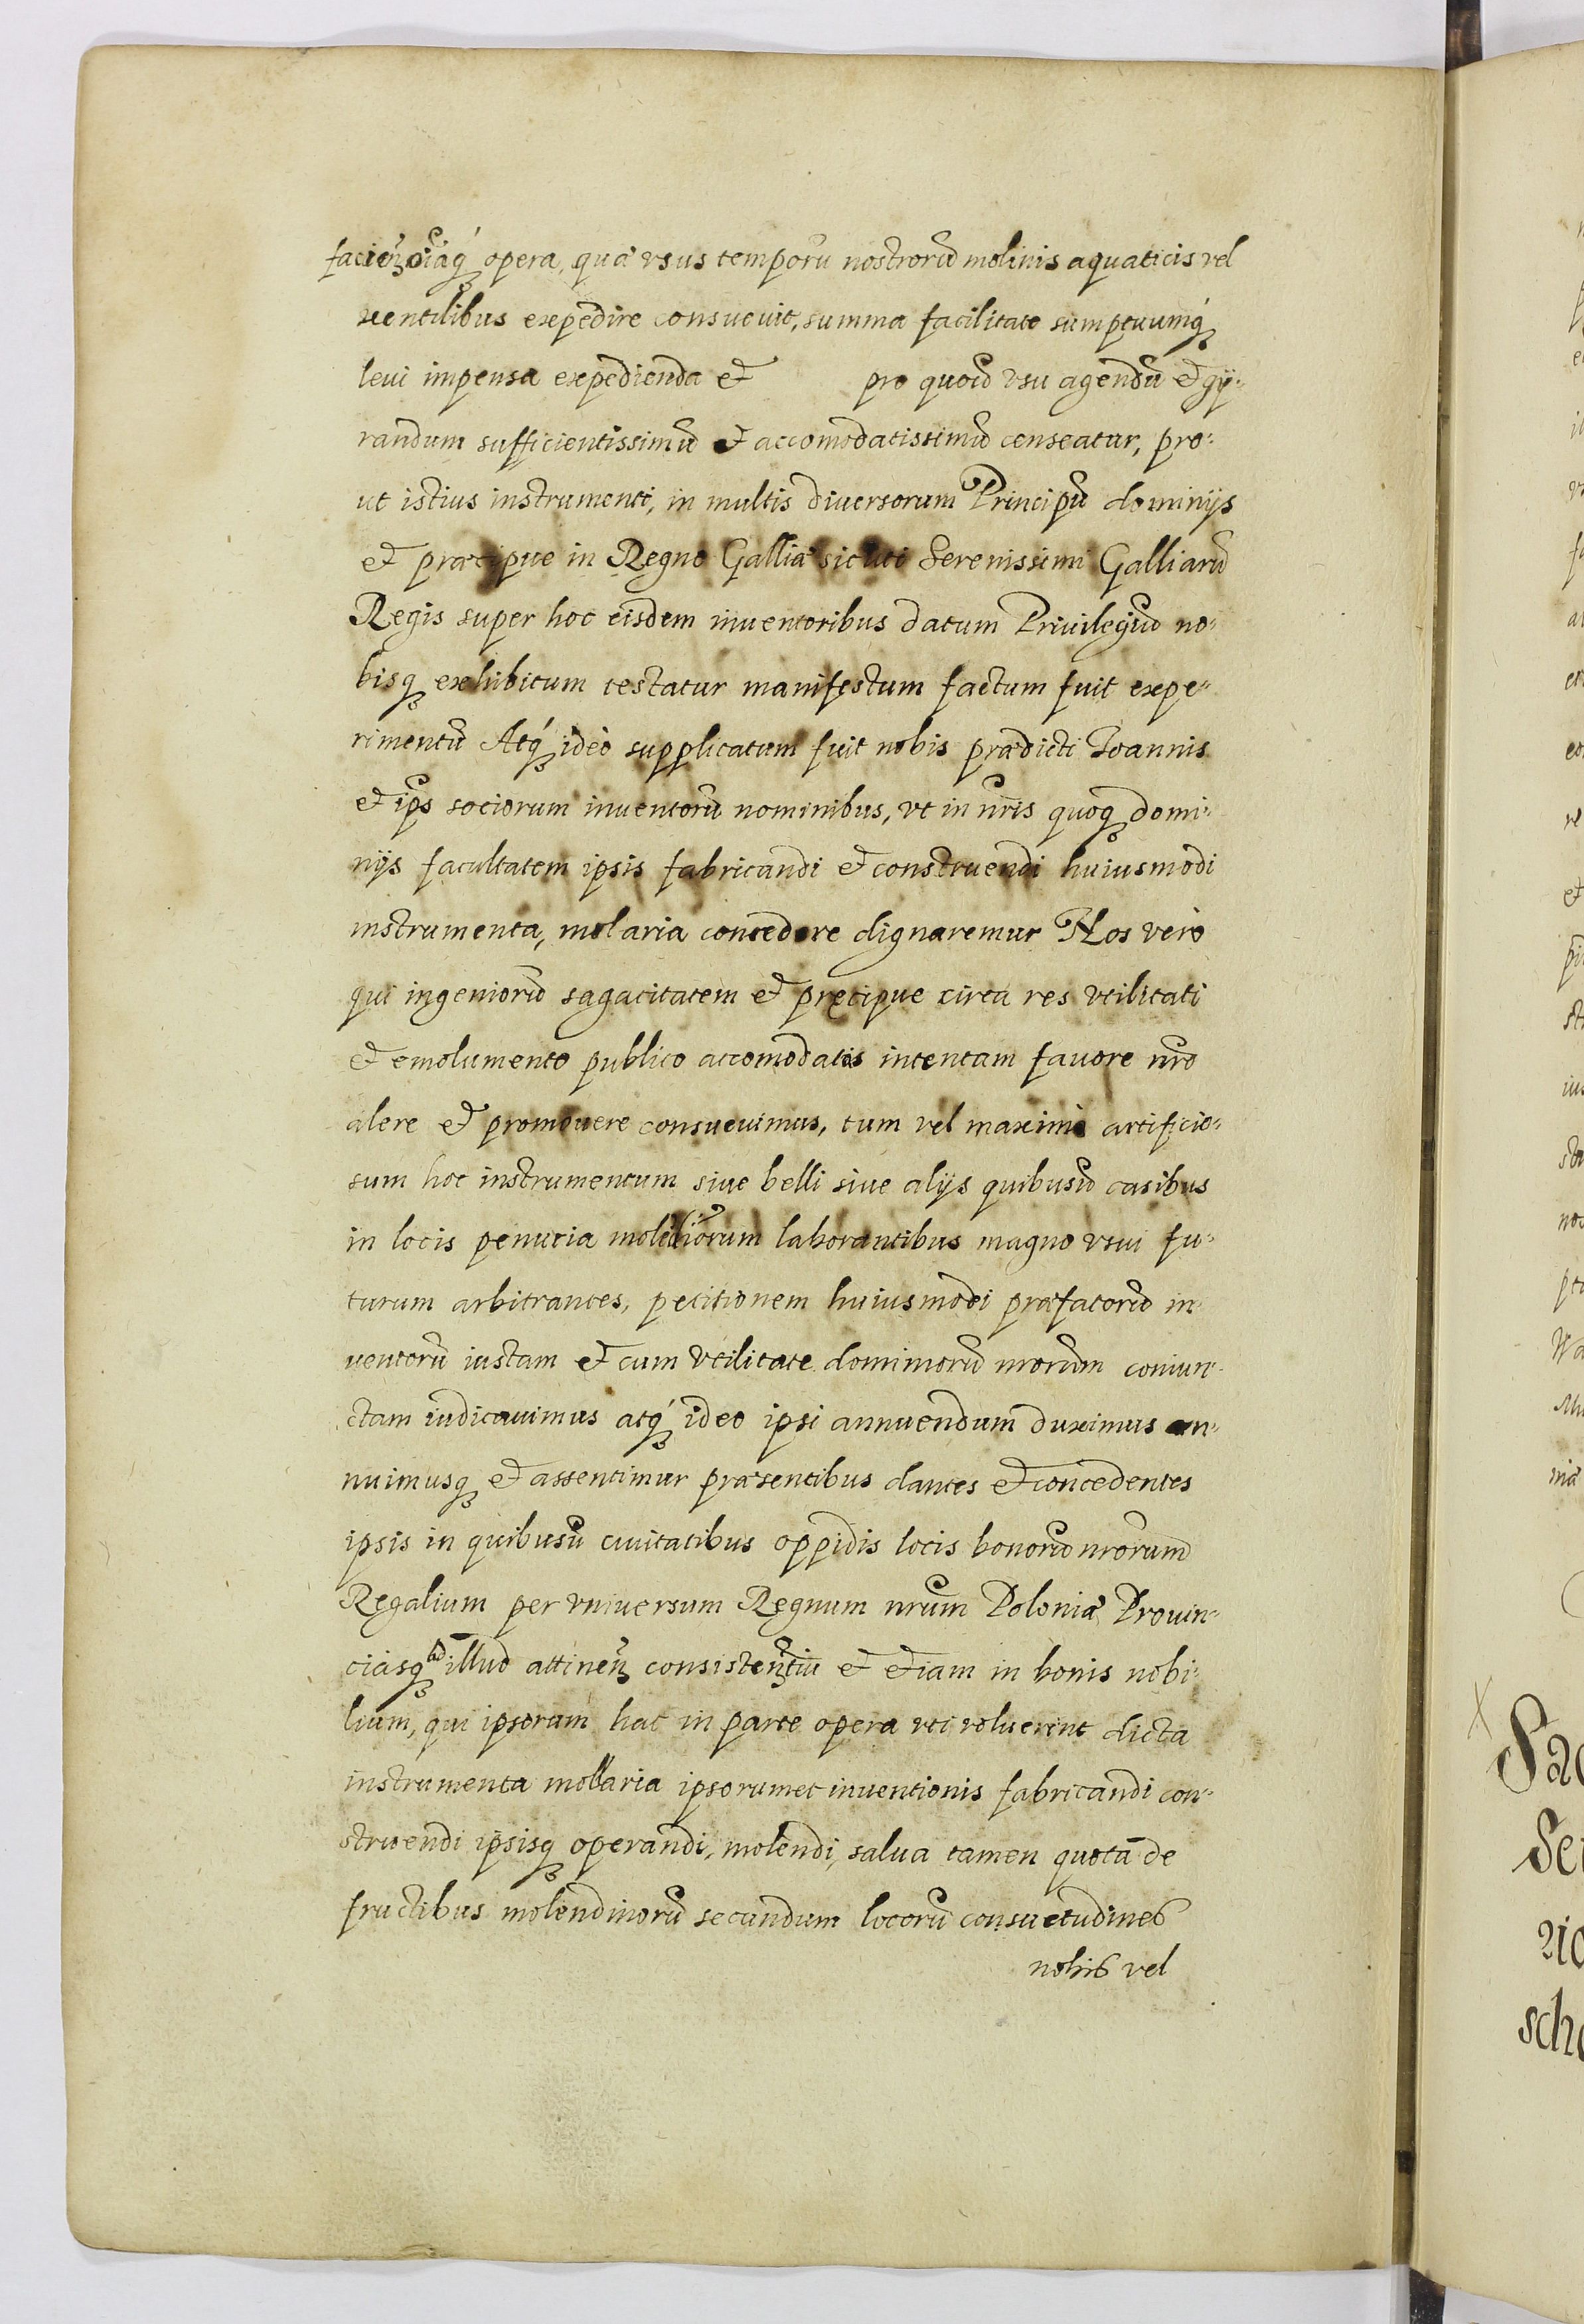 facien̄ oīaq́ꝫ opera, quæ vsus temporū nostrorū molinis aquaticis vel
ventilibus expedire consueuit, summa facilitate sumptuumq́ꝫ
leui impensa expedienda et pro quouis vsu agendū et gÿ-
randum sufficientissimū et accomodatissimū censeatur, pro-
ut istius instrumenti, in multis diuersorum Principū dominijs
et præcipue in Regno Galliæ sicuti Serenissimi Galliarū
Regis super hoc eisdem inuentoribus datum Priuilegiū no-
bisqꝫ exhibitum testatur manifestum factum fuit expe-
rimentū Atq́ꝫ ideò supplicatum fuit nobis prædicti Joannis
et ip̄s sociorum inuentorū nominibus, vt in nr̄is quoqꝫ domi-
nijs facultatem ipsis fabricandi et construendi huiusmodi
instrumenta, molaria concedere dignaremur Nos verò
qui ingeniorū sagacitatem et pręcipue circa res vtilitati
et emolumento publico accomodatis intentam fauore nr̄o
alere et promouere consueuimus, tum vel maximè artificio-
sum hoc instrumentum siue belli siue alijs quibusuis casibus
in locis penuria laborantibus magno vsui fu-
turum arbitrantes, petitionem huiusmodi præfatorū in-
uentorū iustam et cum vtilitate dominiorū nr̄orum coniun-
ctam iudicauimus atq́ꝫ ideo ipsi annuendum duximus an-
nuimusqꝫ et assentimur præsentibus dantes et concedentes
ipsis in quibusuis ciuitatibus oppidis locis bonorū nr̄orum
Regalium per vniuersum Regnum nr̄um Poloniæ Prouin-
ciasqꝫ ad illud attinen̄ consistentiū et etiam in bonis nobi-
lium, qui ipsorum hac in parte opera vti voluerint dicta
instrumenta mollaria ipsorumet inuentionis fabricandi con-
struendi ipsisqꝫ operandi, molendi, salua tamen quota de
fructibus molendinorū secundum locorū consuetudines
nobis vel